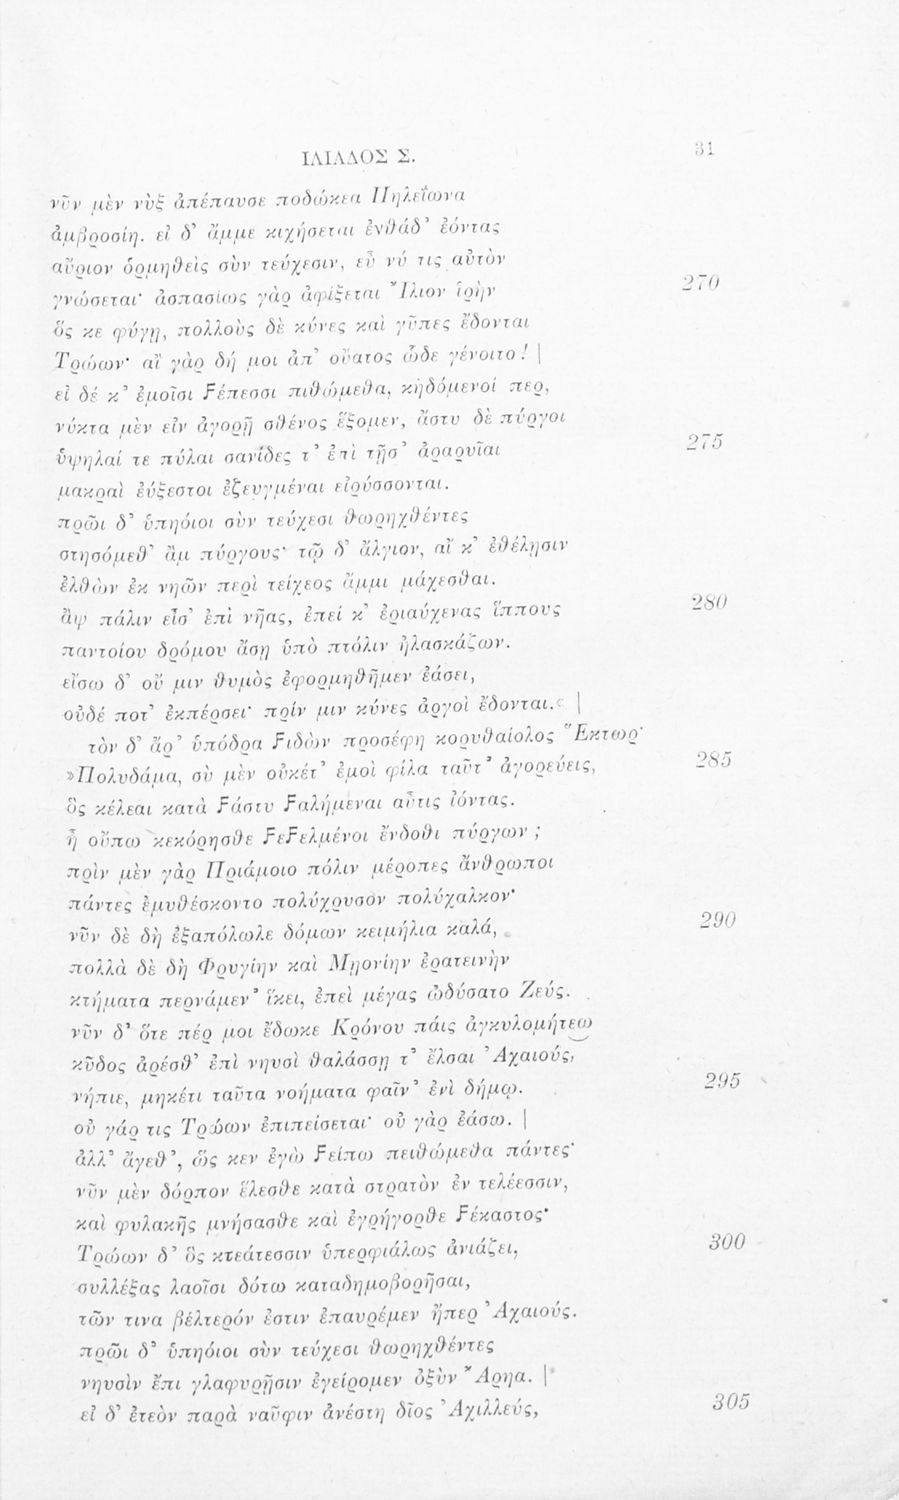 ΙΛΙΑΔΟΣ Σ. 31
νῦν μὲν νὺξ ἀπέπαυσε ποδώκεα Πηλεΐωνα
ἀμβροσίη. εἰ δ᾽ ἄμμε κιχήσεται ἐνθάδ᾽ ἐόντας
αὔριον ὁρμηθεὶς σὺν τεύχεσιν, εὖ νύ τις αὐτὸν
γνώσεται· ἀσπασίως γὰρ ἀφίξεται Ἴλιον ἱρὴν 270
ὅς κε φύγῃ, πολλοὺς δὲ κύνες καὶ γῦπες ἔδονται
Τρώων· αἲ γὰρ δή μοι ἀπ᾽ οὔατος ὧδε γένοιτο! |
εἰ δέ κ᾽ ἐμοῖσι Ϝέπεσσι πιθώμεθα, κηδόμενοί περ,
νύκτα μὲν εἰν ἀγορῇ σθένος ἕξομεν, ἄστυ δὲ πύργοι
ὑψηλαί τε πύλαι σανίδες τ᾽ ἐπὶ τῇσ᾽ ἀραρυῖαι 275
μακραὶ ἐύξεστοι ἐζευγμέναι εἰρύσσονται.
πρῶι δ᾽ ὑπηόιοι σὺν τεύχεσι θωρηχθέντες
στησόμεθ᾽ ἂμ πύργους· τῷ δ᾽ ἄλγιον, αἴ κ᾽ ἐθέλῃσιν
ἐλθὼν ἐκ νηῶν περὶ τείχεος ἄμμι μάχεσθαι.
ἂψ πάλιν εἶσ᾽ ἐπὶ νῆας, ἐπεί κ᾽ ἐριαύχενας ἵππους 280
παντοίου δρόμου ἄσῃ ὑπὸ πτόλιν ἠλασκάζων.
εἴσω δ᾽ οὔ μιν θυμὸς ἐφορμηθῆμεν ἐάσει,
οὐδέ ποτ᾽ ἐκπέρσει· πρίν μιν κύνες ἀργοὶ ἔδονται.« |
τὸν δ᾽ ἄρ᾽ ὑπόδρα Ϝιδὼν προσέφη κορυθαίολος Ἕκτωρ·
»Πολυδάμα, σὺ μὲν οὐκέτ᾽ ἐμοὶ φίλα ταῦτ᾽ ἀγορεύεις, 285
ὃς κέλεαι κατὰ Ϝάστυ Ϝαλήμεναι αὖτις ἰόντας.
ἦ οὔπω κεκόρησθε ϜεϜελμένοι ἔνδοθι πύργων ;
πρὶν μὲν γὰρ Πριάμοιο πόλιν μέροπες ἄνθρωποι
πάντες ἐμυθέσκοντο πολύχρυσον πολύχαλκον·
νῦν δὲ δὴ ἐξαπόλωλε δόμων κειμήλια καλά, 290
πολλὰ δὲ δὴ Φρυγίην καὶ Μῃονίην ἐρατεινὴν
κτήματα περνάμεν᾽ ἵκει, ἐπεὶ μέγας ὠδύσατο Ζεύς.
νῦν δ᾽ ὅτε πέρ μοι ἔδωκε Κρόνου πάις ἀγκυλομήτεω
κῦδος ἀρέσθ᾽ ἐπὶ νηυσὶ θαλάσσῃ τ᾽ ἔλσαι Ἀχαιούς,
νήπιε, μηκέτι ταῦτα νοήματα φαῖν᾽ ἐνὶ δήμῳ. 295
οὐ γάρ τις Τρώων ἐπιπείσεται· οὐ γὰρ ἐάσω. |
ἀλλ᾽ ἄγεθ᾽, ὥς κεν ἐγὼ Ϝείπω πειθώμεθα πάντες·
νῦν μὲν δόρπον ἕλεσθε κατὰ στρατὸν ἐν τελέεσσιν,
καὶ φυλακῆς μνήσασθε καὶ ἐγρήγορθε Ϝέκαστος·
Τρώων δ᾽ ὃς κτεάτεσσιν ὑπερφιάλως ἀνιάζει, 300
συλλέξας λαοῖσι δότω καταδημοβορῆσαι,
τῶν τινα βέλτερόν ἐστιν ἐπαυρέμεν ἤπερ Ἀχαιούς.
πρῶι δ᾽ ὑπηόιοι σὺν τεύχεσι θωρηχθέντες
νηυσὶν ἔπι γλαφυρῇσιν ἐγείρομεν ὀξὺν Ἄρηα. |
εἰ δ᾽ ἐτεὸν παρὰ ναῦφιν ἀνέστη δῖος Ἀχιλλεύς, 305